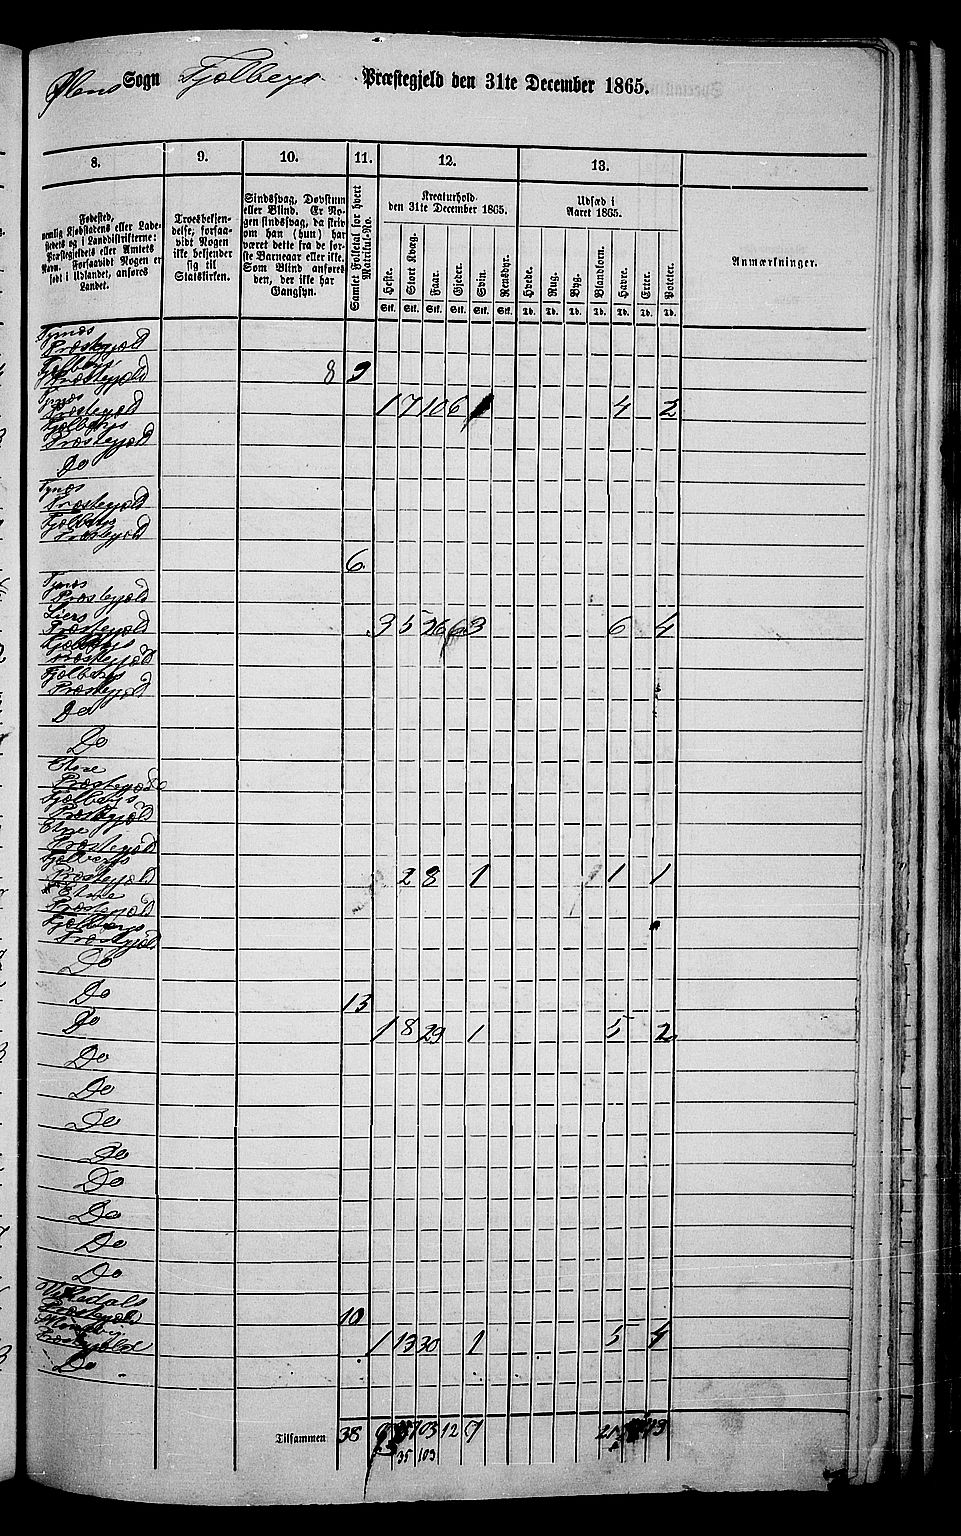 Ølens Sogn Fjelbergs Præstegjeld den 31te December 1865.
8. 9. 10. 11. 12. 13.
Fødested,
nemlig Kjøbstadens eller Lade-
stedets og i Landdistrikterne:
Præstegjeldets eller Amtets
Navn. Forsaavidt Nogen er
født i Udlandet, anføres
Landet.
Troesbekjen-
delse, forsaa-
vidt Nogen
ikke bekjender
sig til
Statskirken.
Sindssvag, Døvstum
eller Blind. Er No-
gen sindssvag, da skriv
om han (hun) har
været dette fra de før-
ste Barneaar eller ikke.
Som Blind anføres
den, der ikke har
Gangsyn.
Samlet Folketal for hvert
Matrikul-No.
Kreaturhold
den 31te December 1865.
Udsæd i
Aaret 1865.
Anmærkninger.
Heste. Stort Kvæg. Faar. Gjeder. Svin. Rensdyr. Hvede. Rug. Byg. Blandkorn. Havre. Erter. Poteter.
Stk. Stk. Stk. Stk. Stk. Stk. Td. Td. Td. Td. Td. Td. Td.
Tysnæs
Præstegjeld
Fjelbergs
Præstegjeld 8 9
Tysnæs
Præstegjeld 1 7 10 6 4 2
Fjelbergs
Præstegjeld
Do
Tysnæs
Præstegjeld
Fjelbergs
Præstegjeld
6
Tysnæs
Præstegjeld
Præstegjeld 3 5 26 6 3 6 4
Fjelbergs
Præstegjeld
Fjelbergs
Præstegjeld
Do
Do
Etne
Præstegjeld
Fjelbergs
Præstegjeld
Etne
Præstegjeld
Fjelbergs
Præstegjeld 2 8 1 1 1
Etne
Præstegjeld
Fjelbergs
Præstegjeld
Do
Do 13
Do 1 8 29 1 5 2
Do
Do
Do
Do
Do
Do
Do
Do
Vikedals
Præstegjeld 10
Præstegjeld 1 13 30 1 5 4
Do
Tilsammen 38 103 12 7 21 13
35 103